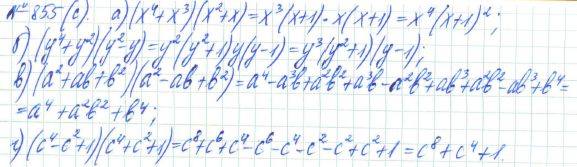 № 855 (с). а) (x⁴+x³)(x²+x) = x³(x+1)·x(x+1) = x⁴(x+1)²;
б) (y⁴+y²)(y²-y) = y²(y²+1)y(y-1) = y³(y²+1)(y-1);
в) (a²+ab+b²)(a²-ab+b²) = a⁴-a³b+a²b²+a³b-a²b²+ab³+a²b²-ab³+b⁴=
= a⁴+a²b²+b⁴;
г) (c⁴-c²+1)(c⁴+c²+1) = c⁸+c⁶+c⁴-c⁶-c⁴-c²-c²+c²+1 = c⁸+c⁴+1.